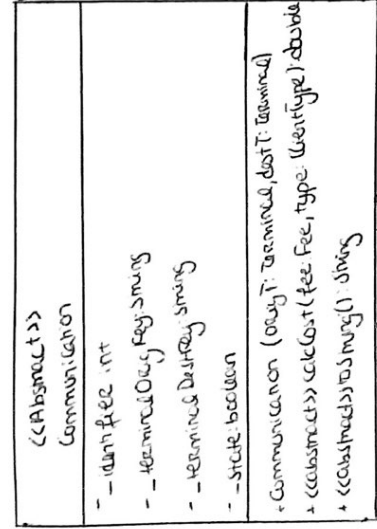 <<Abstract>>
Communication
- _identifier: int
- _terminalOrigKey: String
- _terminalDestKey: String
- _state: boolean
+ Communication (origT: Terminal, destT: Terminal)
+ <<abstract>> calcCost (fee: Fee, type: ClientType): double
+ <<abstract>> toString(): String